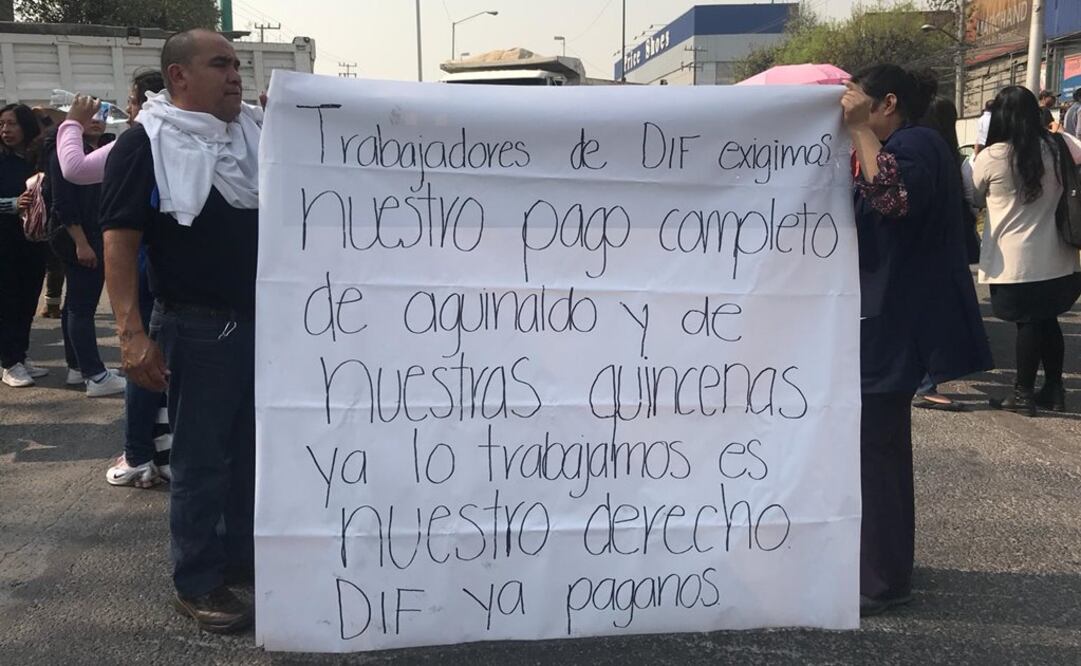 Price Shoes
MARCHAND
Trabajadores de DIF exigimos
nuestro pago completo
de aguinaldo y de
nuestras quincenas
ya lo trabajamos es
nuestro derecho.
DIF ya paganos.